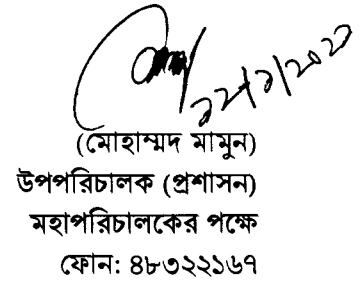 (মোহাম্মদ মামুন)
উপপরিচালক (প্রশাসন)
মহাপরিচালকের পক্ষে
ফোন: ৪৮৩২২১৬৭